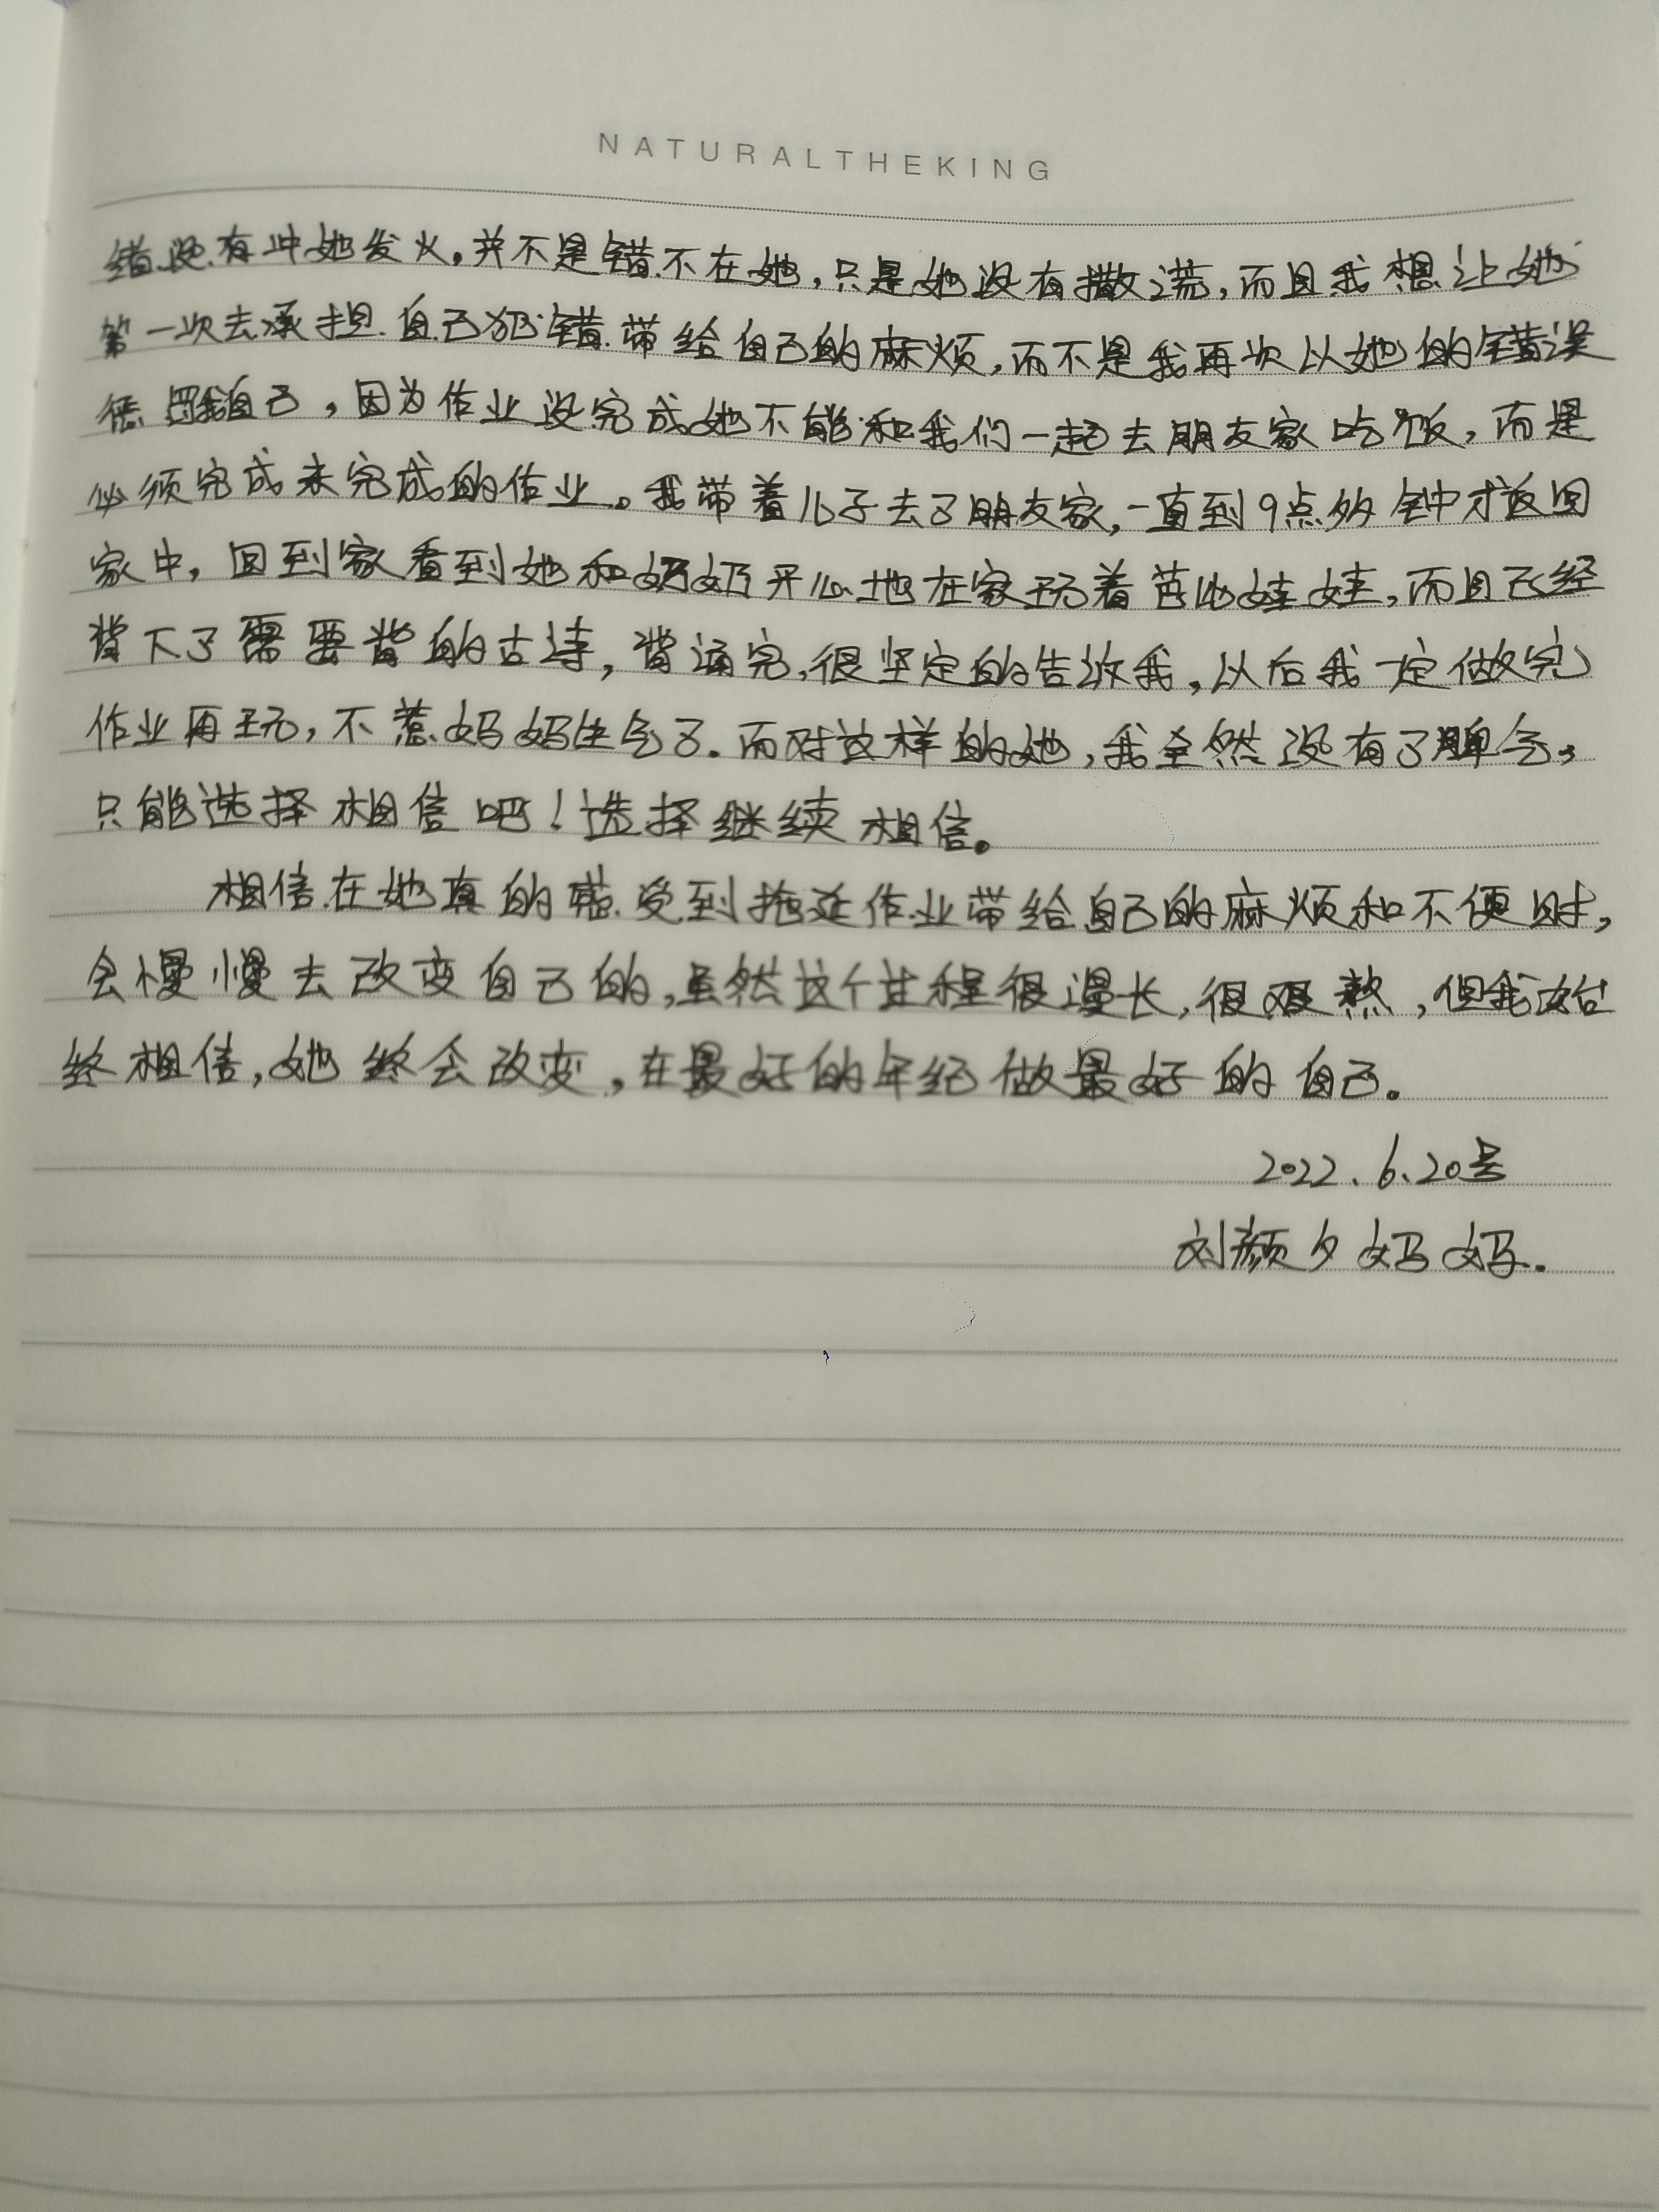 NATURALTHEKING
错没有冲她发火。并不是错不在她,只是她没有撒谎,而且我想让她
第一次去承担自己犯错带给自己的麻烦,而不是我再次以她的错误
惩罚我自己,因为作业没完成她不能和我们一起去朋友家吃饭,而是
必须完成未完成的作业。我带着儿子去了朋友家,一直到9点多钟才返回
家中,回到家看到她和奶奶开心地在家玩着芭比娃娃,而且已经
背下了需要背的古诗,背诵完,很坚定的告诉我,以后我一定做完
作业再玩,不惹妈妈生气了.而对这样的她,我全然没有了脾气,
只能选择相信吧!选择继续相信。
相信在她真的感受到拖延作业带给自己的麻烦和不便时,
会慢慢去改变自己的,虽然这个过程很漫长,很艰熬,但我始
终相信,她终会改变,在最好的年纪做最好的自己。
2022.6.20号
刘颜夕妈妈.